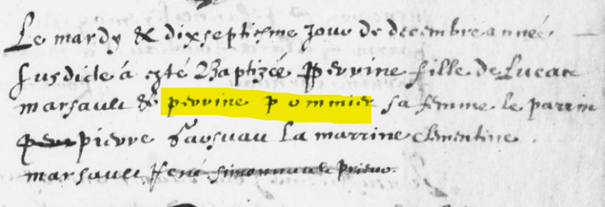 Le mardy & dixseptiesme Jour de decembre année
susdicte à esté Baptizée Perrine fille de Lucan
marsault & perrine pommier sa femme le parrin
pierre la marrine Clementine
marsault René Simonnault